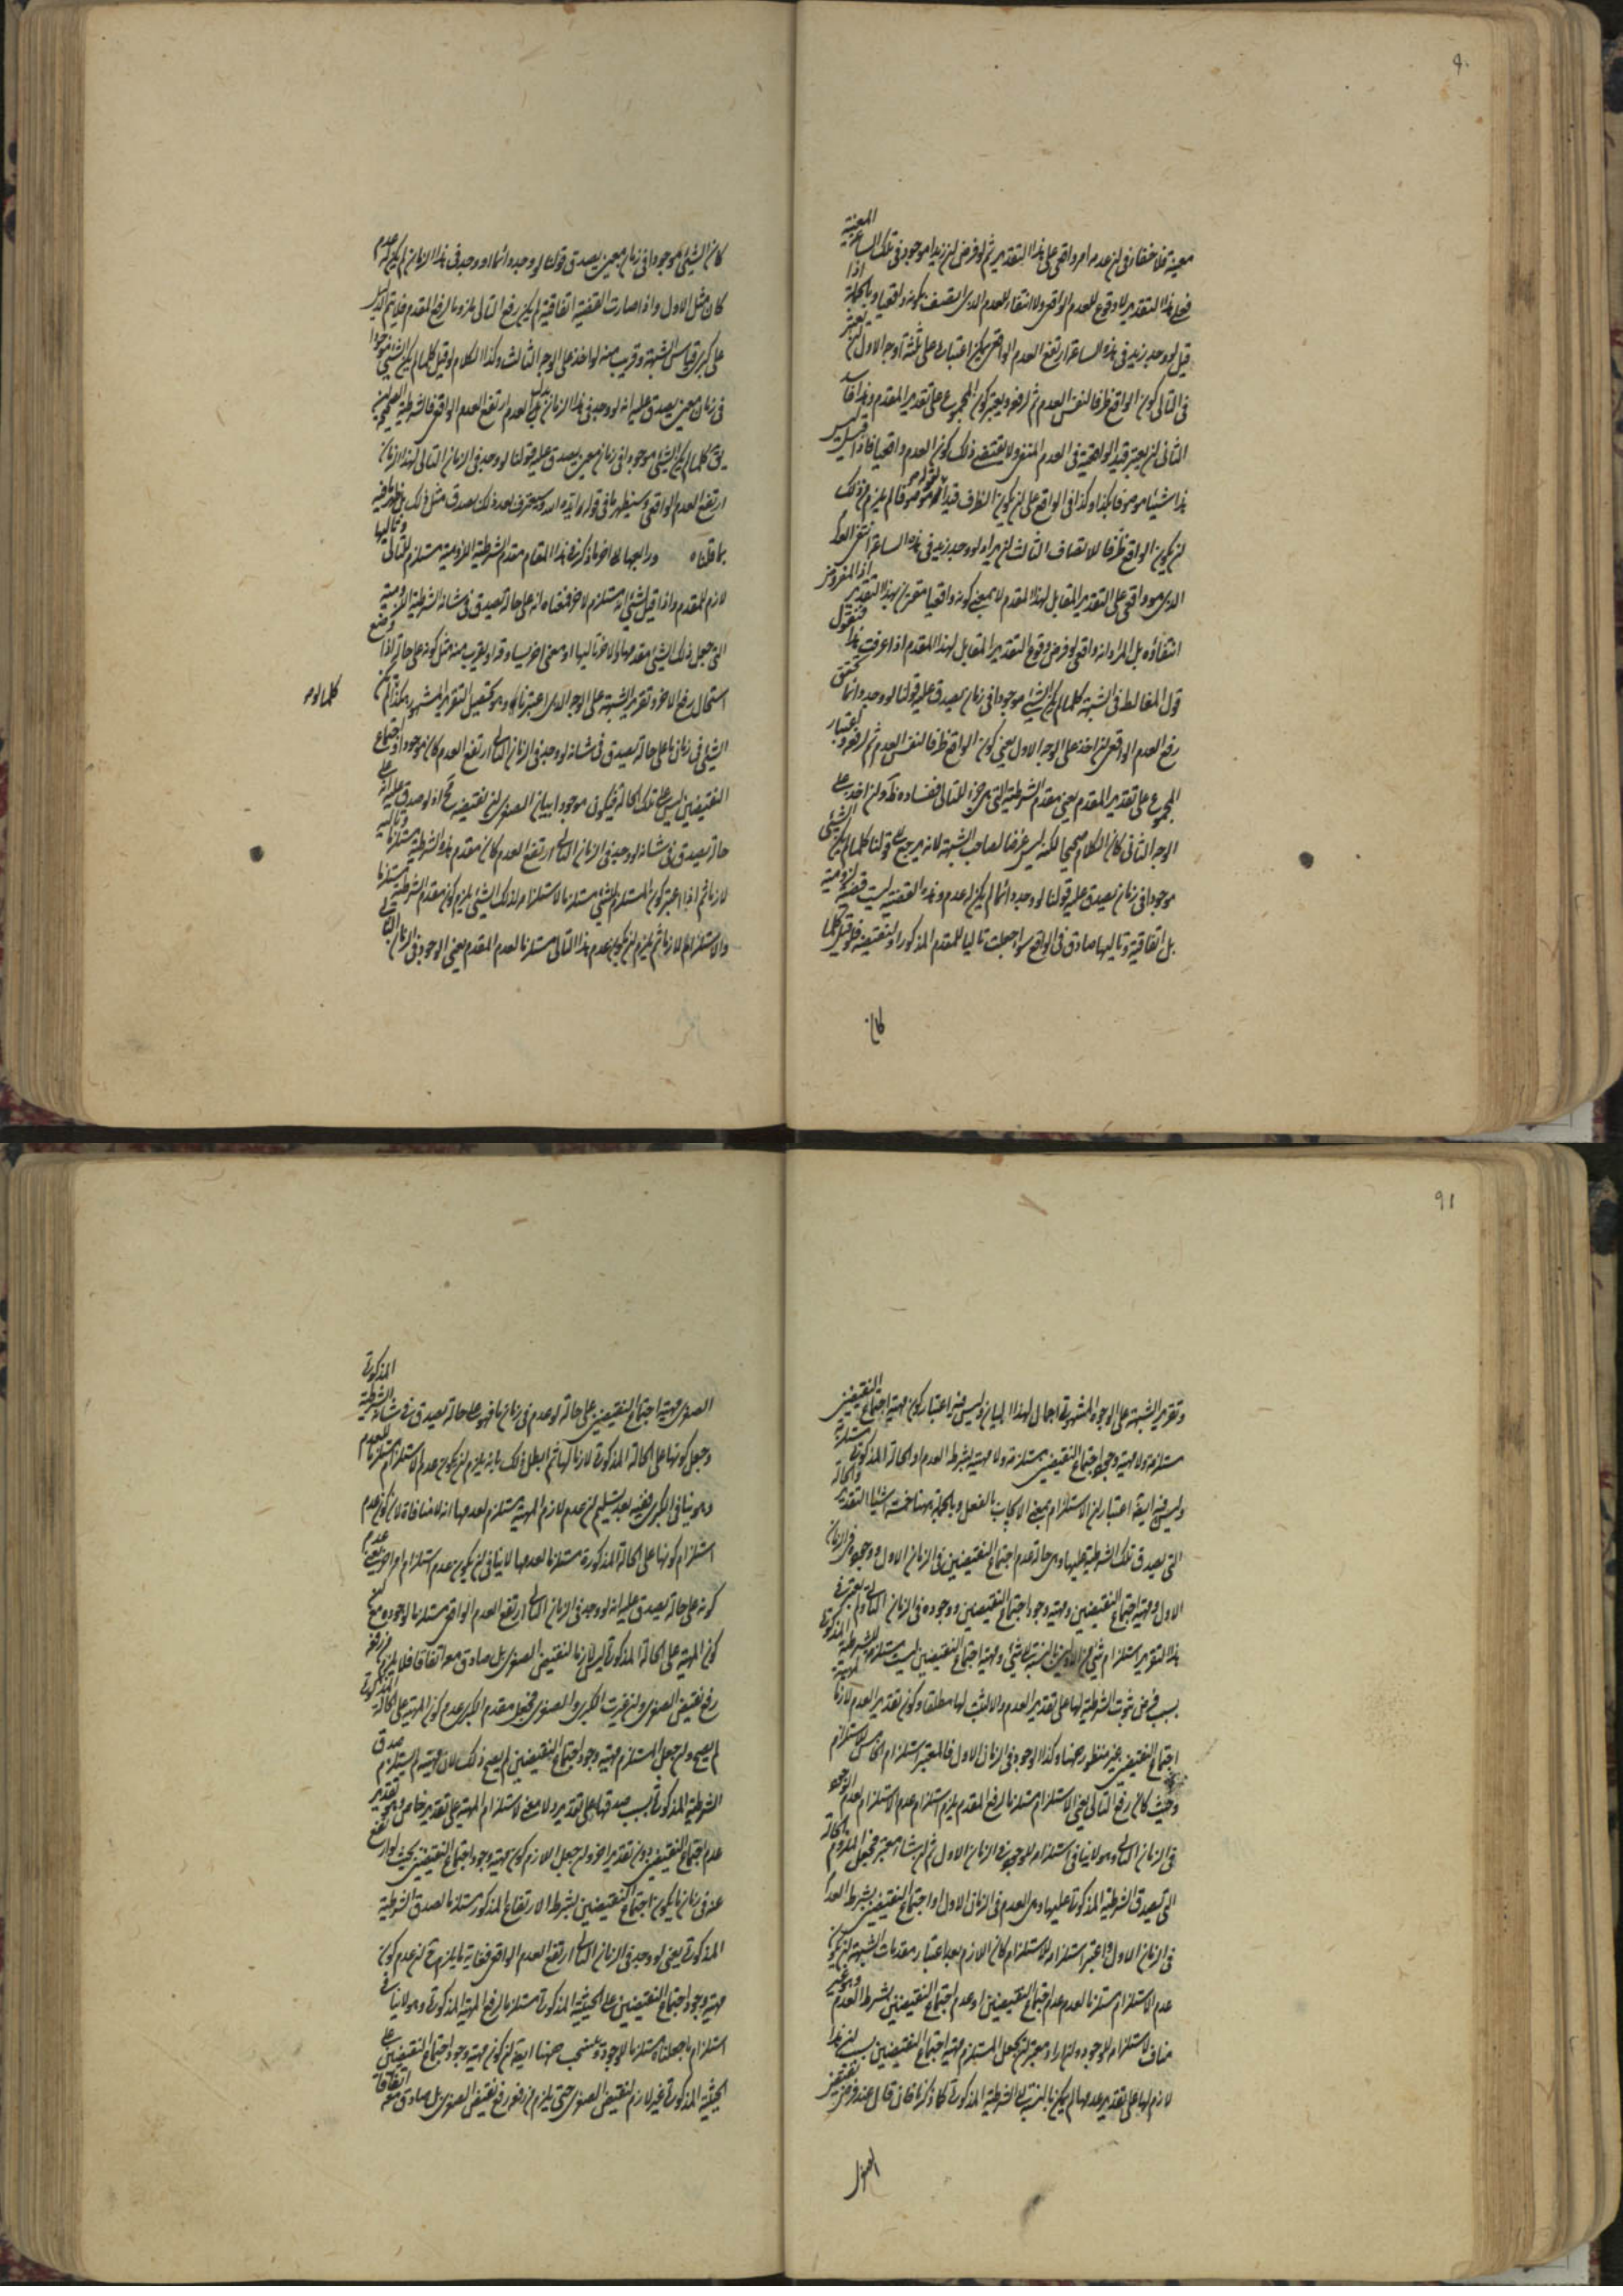 ٩٠
معينة فلا خفاء في ان عدمه امر واقعي على هذا التقدير ثم لو فرض ان زيدا موجود في تلك الساعة المعينة
فعلى هذا التقدير لا وقوع للعدم الواقعي ولا انتفاء للعدم الذي اتصف بكونه واقعيا وبالجملة اذا
قيل لو وجد زيد في هذه الساعة ارتفع العدم الواقعي يمكن اعتباره على ثلثة اوجه الاول ان يعتبر
في التالي كون الواقع ظرفا لنفس العدم ثم رفعه ويعتبر كون المجموع على تقدير المقدم وهذا فاسد
الثاني ان يعتبر قيد الواقعية في العدم المنتفي ولا يقتضي ذلك كون العدم واقعيا فاذا قيل ليس
هذا شيئا موصوفا بكذا وكذا في الواقع على ان يكون الظرف قيدا لموصوفا لم يلزم من ذلك
ان يكون الواقع ظرفا للاتصاف الثالث ان يراد لو وجد زيد في هذه الساعة انتفى العدم
الذي هو واقعي على التقدير المقابل لهذا المقدم لا بمعنى كونه واقعيا مقترن بهذا التقدير اذ المفروض
انتفاؤه بل المراد انه واقعي لو فرض وقوع التقدير المقابل لهذا المقدم اذا عرفت هذا فنقول
قول المغالط في الشبهة كلما لم يكن الشيء موجودا في زمان يصدق عليه قولنا لو وجد دائما تحقق
رفع العدم الواقعي ان اخذ على الوجه الاول يعني كون الواقع ظرفا لنفس العدم ثم رفعه واعتبار
المجموع على تقدير المقدم يعني مقدم الشرطية التي هي جزء للتالي ففساده ظ وان اخذ على
الوجه الثاني كان الكلام صحيحا لكنه ليس غرضا لصاحب الشبهة لانه يرجع الى قولنا كلما لم يكن الشيء
موجودا في زمان يصدق عليه قولنا لو وجد دائما لم يكن له عدم وهذه القضية ليست قضية لزومية
بل اتفاقية وتاليها صادق في الواقع سواء جعلت تاليا للمقدم المذكور او لنقيضه فلو قيل كلما
كان
كان الشيء موجودا في زمان معين يصدق قولنا لو وجد دائما او وجد في هذا الزمان لم يكن له عدم
كان مثل الاول واذا صارت القضية اتفاقية لم يكن رفع التالي ملزوما لرفع المقدم فلا يتم الدليل
على كبرى قياس الشبهة وقريب منه لو اخذ على الوجه الثالث وكذا الكلام لو قيل كلما لم يكن الشيء موجودا
في زمان معين يصدق عليه انه لو وجد في هذا الزمان بدل العدم ارتفع العدم الواقعي فالشرطية الصحيحة ان
يق كلما لم يكن الشيء موجودا في زمان معين يصدق عليه قولنا لو وجد في الزمان التالي لهذا الزمان
ارتفع العدم الواقعي وسيظهر ما في قوله ايده الله وسيعترف بعد ذلك بصدق مثل ذلك بل ظهر ما فيه
بما قلناه ورابعها ان اخر ما ذكره في هذا المقام مقدم الشرطية اللزومية مستلزم للتالي وتاليها
لازم للمقدم واذا قيل لشيء انه مستلزم لاخر فمعناه انه على حالة يصدق في شانه الشرطية اللزومية
التي جعل ذلك الشيء مقدمها والاخر تاليها او معنى اخر يساوقه او يقرب منه مثل كونه على حالة اذا وضع
استحال رفع الاخر وتقرير الشبهة على الوجه الذي اعتبرناه وهو تفصيل التقرير المشهور هكذا لم يكن
كلما لو م
الشيء في زمان ما على حالة يصدق في شانه لو وجد في الزمان التالي ارتفع العدم كان موجودا واجتماع
النقيضين ليس على تلك الحالة فيكون موجودا بيان الصغرى ان نقيضه مح اذ لو صدق عليه انه على
حالة يصدق في شانه لو وجد في الزمان التالي ارتفع العدم كان مقدم هذه الشرطية مستلزما وتاليه
لازما ثم اذا اعتبر كون المستلزم لشيء مستلزما لاستلزامه لذلك الشيء يلزم كون مقدم الشرطية مستلزما
والاستلزام لازما ثم يلزم ان يكون عدم هذا التالي مستلزما لعدم المقدم يعني الوجود في الزمان التالي
٩١
وتقرير الشبهة على الوجوه المشهورة اجمالي لهذا البيان وليس فيه اعتبار كون مهية اجتماع النقيضين
مستلزمة ولا مهية وجود اجتماع النقيضين مستلزمة ولا مهيته بشرط العدم او الحالة المذكورة مستلزمة
وليس فيه ايضا اعتبار ان الاستلزام بمعنى الايجاب بالفعل وبالجملة ههنا خمسة اشياء التقدير والحالة
التي يصدق تلك الشرطية عليها وهي حالة عدم اجتماع النقيضين في الزمان الاول ووجوده في الزمان
الاول ومهية اجتماع النقيضين ومهية وجود اجتماع النقيضين ووجوده في الزمان التالي ولم يعتبر في
هذا التقرير استلزام شيء من الاولين بالنسبة الى شيء ومهية اجتماع النقيضين ليست مستلزمة للشرطية المذكورة
بسبب فرض ثبوت الشرطية لها على تقدير العدم والا لثبت لها مطلقا وكون تقدير العدم لازما لمهية
اجتماع النقيضين غير منظور ههنا وكذا الوجود في الزمان الاول فالمعتبر استلزام الخامس للاستلزام
وحيث كان رفع التالي يعني الاستلزام مستلزما لرفع المقدم يلزم استلزام عدم الاستلزام لعدم الوجود
في الزمان التالي وهو لا ينافي استلزامه للوجود في الزمان الاول ثم ان شاء معتبر فجعل الملزوم الحالة
التي تصدق الشرطية المذكورة عليها وهي العدم في الزمان الاول او اجتماع النقيضين بشرط العدم
في الزمان الاول واعتبر استلزامه للاستلزام كان اللازم بعد اعتبار مقدمات الشبهة ان يكون
عدم الاستلزام مستلزما لعدم عدم اجتماع النقيضين او عدم اجتماع النقيضين بشرط العدم وهو غير
مناف لاستلزامه لوجوده وان اراد معتبر ان يجعل المستلزم مهية اجتماع النقيضين بسبب ان هذا
لازم لها على تقدير عدمها لم يكن بالنسبة الى الشرطية المذكورة كما ذكرنا فان قال عند فرض نقيض
الصغرى
الصغرى مهية اجتماع النقيضين على حالة لو عدم في زمان ما فهو على حالة يصدق في شانه الشرطية المذكورة
وجعل كونها على الحالة المذكورة لازما لها ثم ابطل ذلك بانه يلزم ان يكون عدم الاستلزام مستلزما للعدم
وهو ينافي الكبرى ففيه بعد تسليم ان عدم لازم المهية مستلزم لعدمها انه لا منافاة لان كون عدم
استلزام كونها على الحالة المذكورة مستلزما لعدمها لا ينافي ان يكون عدم استلزام امر اخر يعني عدم
كونه على حالة يصدق عليه انه لو وجد في الزمان التالي ارتفع العدم الواقعي مستلزما لوجوده مع ان
كون المهية على الحالة المذكورة ليس لازما لنقيض الصغرى بل صادق معه اتفاقا فلا يلزم من رفعه
رفع نقيض الصغرى وان غيرت الكبرى والصغرى فجعل مقدم الكبرى عدم كون المهية على الحالة المذكورة
لم يصح وان جعل المستلزم مهية وجود اجتماع النقيضين لم يصح ذلك لان مهيته لم يستلزم صدق
الشرطية المذكورة بسبب صدقها على تقدير ولا معنى لاستلزام المهية على تقدير خاص وهو تقدير
عدم اجتماع النقيضين بدون تقدير اخر وان جعل اللازم كون مهية وجود اجتماع النقيضين بحيث لو ارتفع
عنه في زمان ما يكون اجتماع النقيضين بشرط الارتفاع المذكور مستلزما لصدق الشرطية
المذكورة يعني لو وجد في الزمان التالي ارتفع العدم الواقعي فغاية ما يلزم ح ان عدم كون
مهية وجود اجتماع النقيضين على الحيثية المذكورة مستلزما لرفع المهية المذكورة وهو لا ينافي
استلزام ما جعلناه مستلزما للوجود وينسحب ههنا ايضا ان كون مهية وجود اجتماع النقيضين على
الحيثية المذكورة غير لازم لنقيض الصغرى حتى يلزم من رفعه رفع نقيض الصغرى بل صادق معه اتفاقا